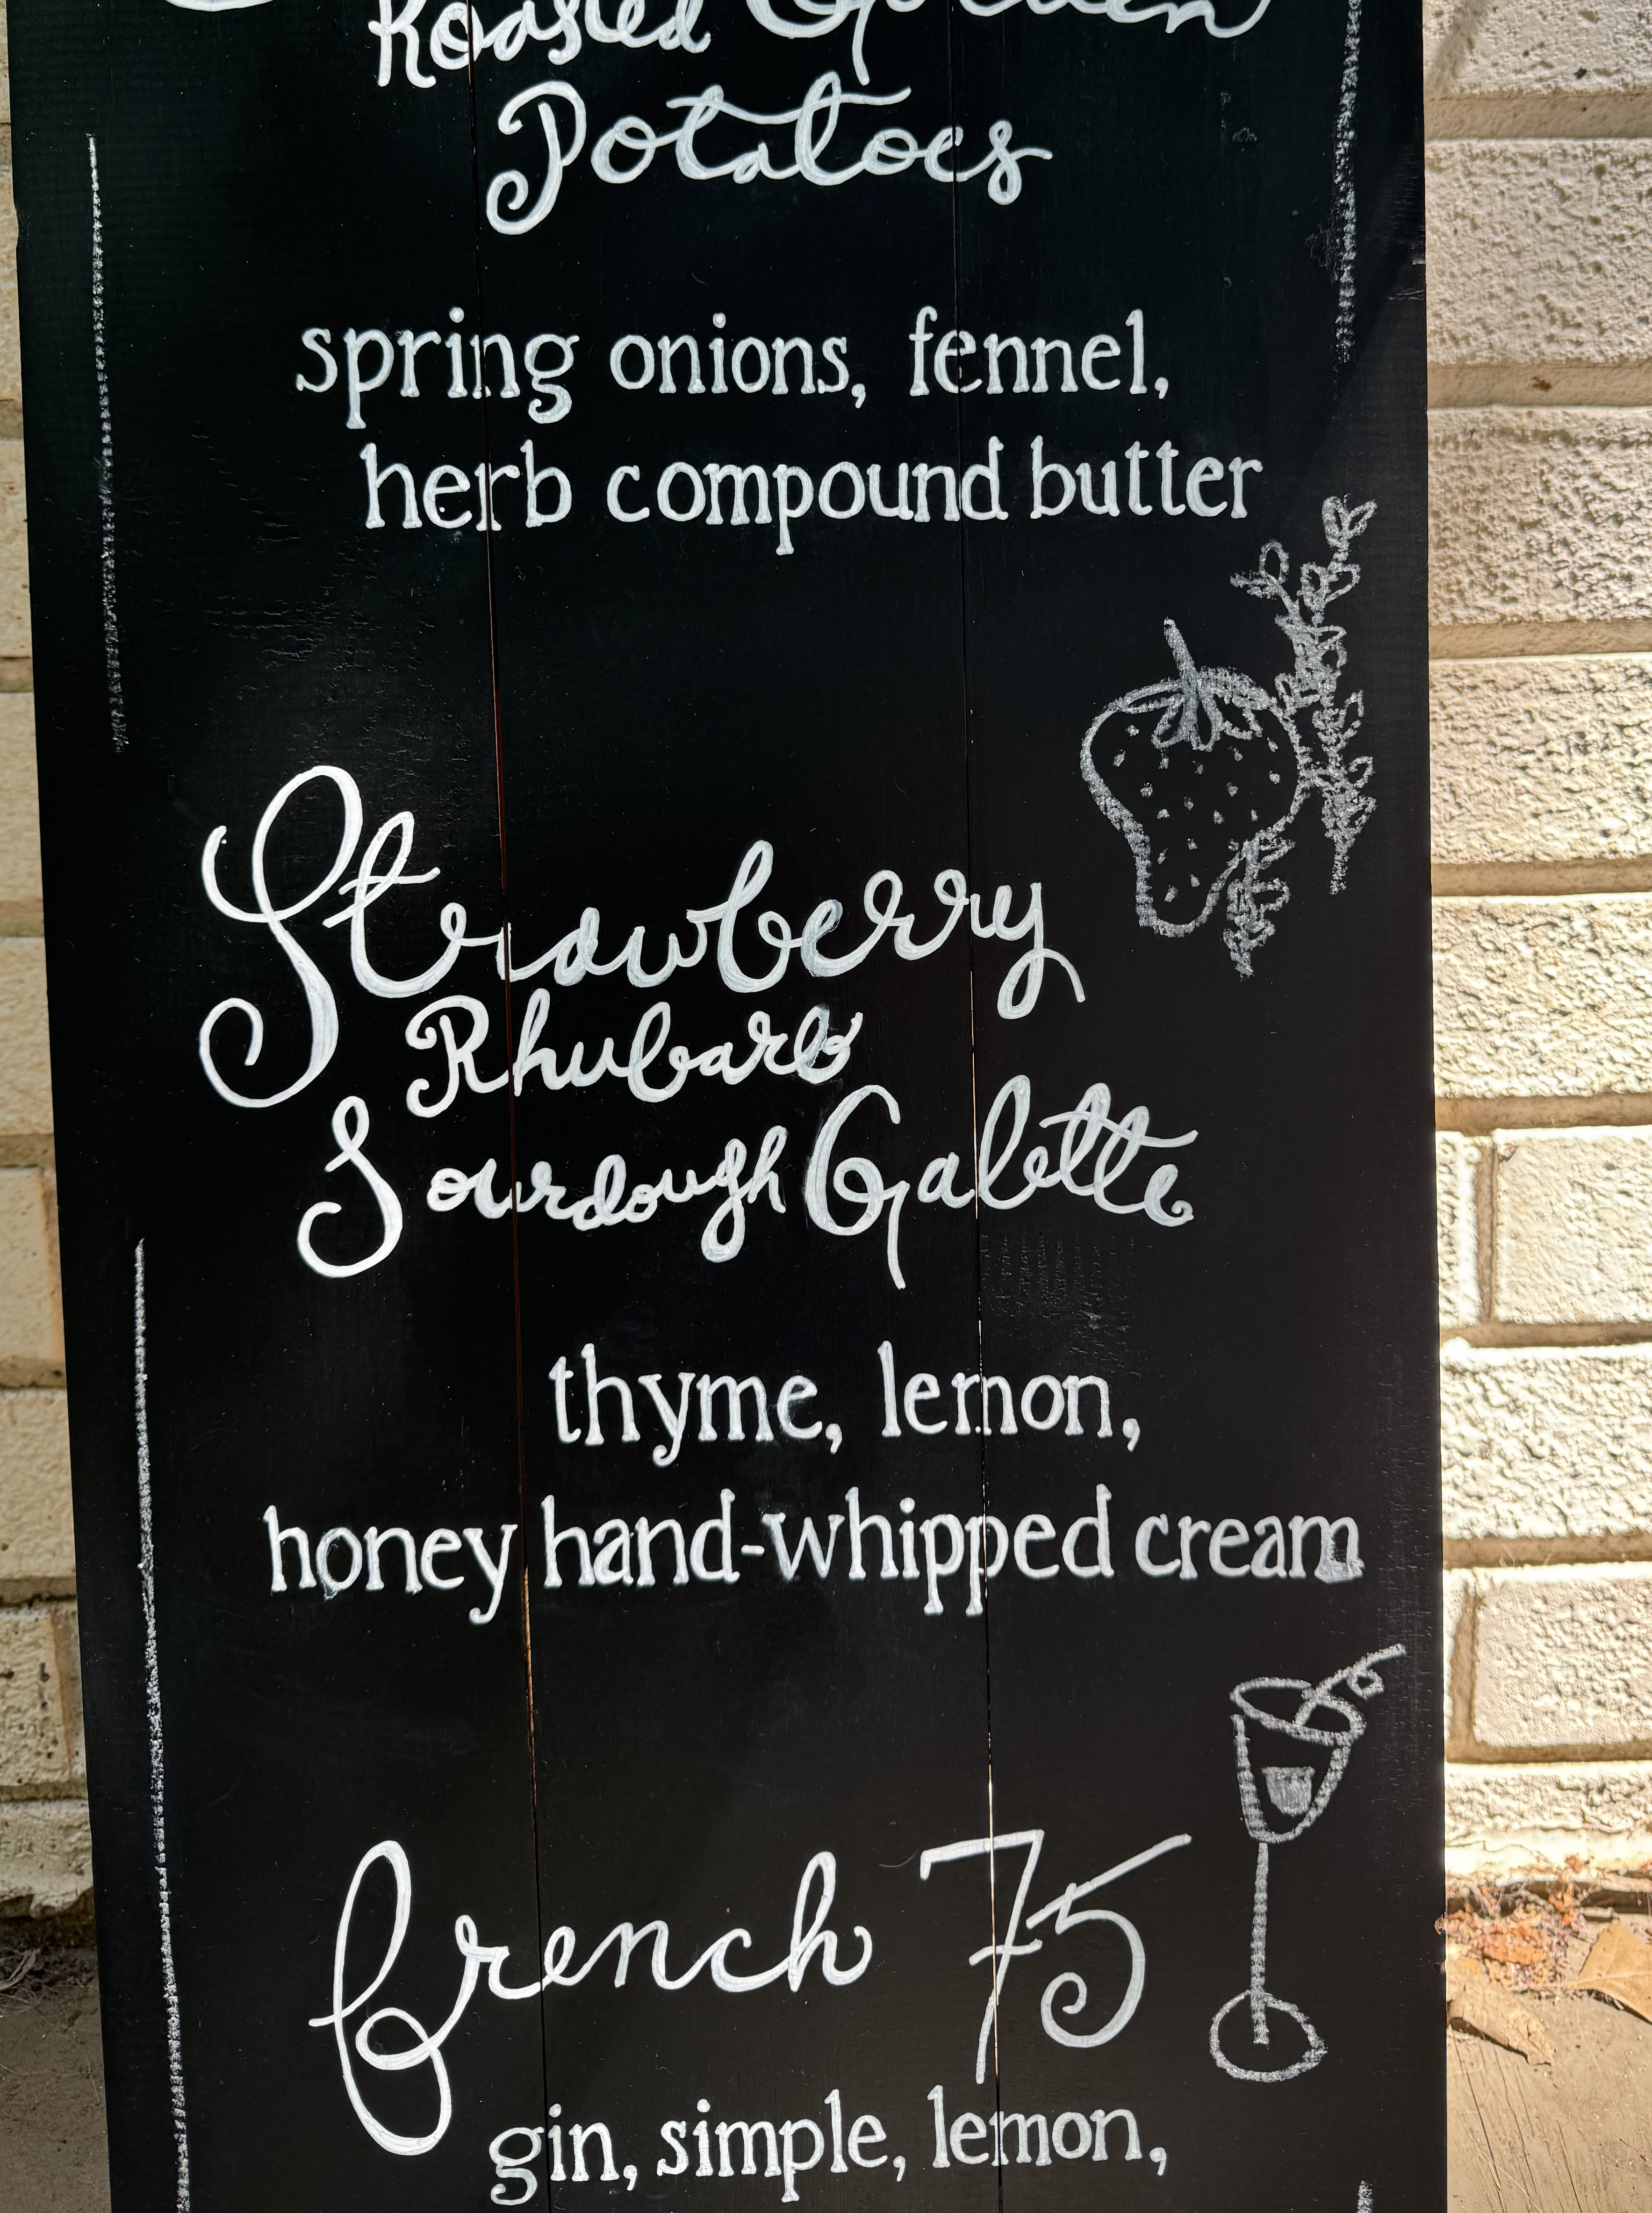 Roasted Garden
Potatoes
spring onions, fennel,
herb compound butter
Strawberry
Rhubarb
Sourdough Galette
thyme, lemon,
honey hand-whipped cream
french 75
gin, simple, lemon,